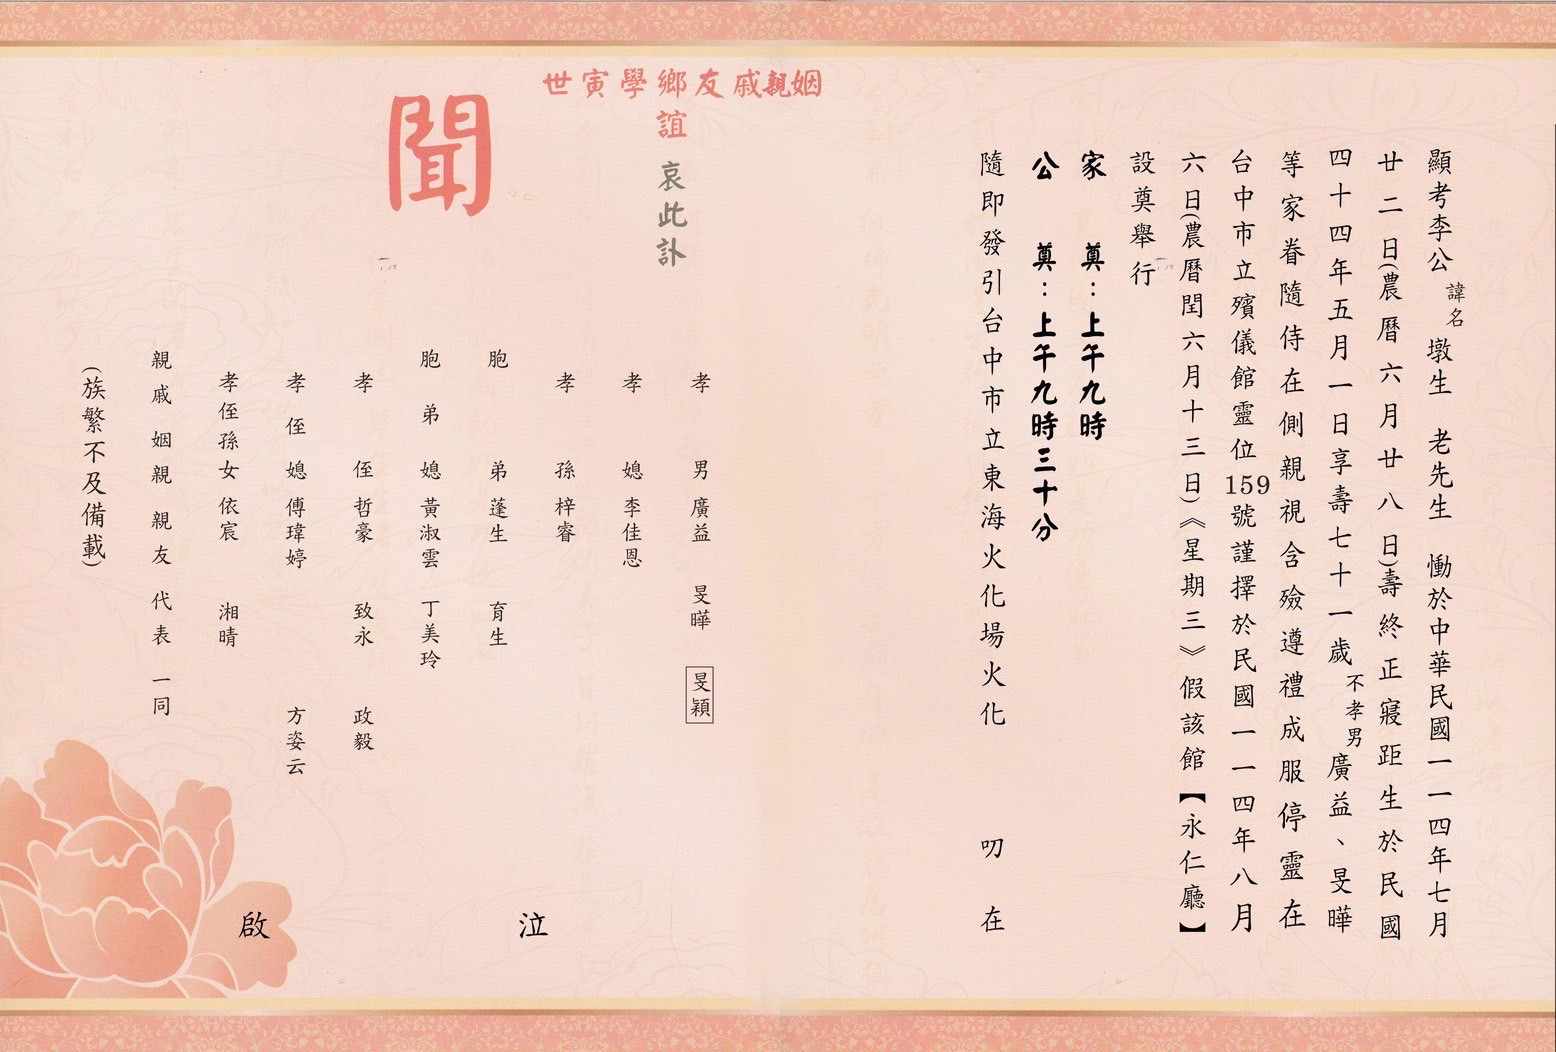 顯考李公諱名墩生 老先生 慟於中華民國一一四年七月
廿二日(農曆六月廿八日)壽終正寢距生於民國
四十四年五月一日享壽七十一歲不孝男廣益、旻曄
等家眷隨侍在側親視含殮遵禮成服停靈在
台中市立殯儀館靈位159號謹擇於民國一一四年八月
六日(農曆閏六月十三日)《星期三》假該館【永仁廳】
設奠舉行
家 奠：上午九時
公 奠：上午九時三十分
隨即發引台中市立東海火化場火化 叨在
姻親戚友鄉學寅世
誼 哀此訃
聞
孝男 廣益 旻曄 旻穎
孝媳 李佳恩
孝孫 梓睿
胞弟 蓬生 育生
胞弟媳 黃淑雲 丁美玲
孝侄 哲豪 致永 政毅
孝侄媳 傅瑋婷 方姿云
孝侄孫女 依宸 湘晴
親戚 姻親 親友 代表 一同
(族繁不及備載)
泣
啟